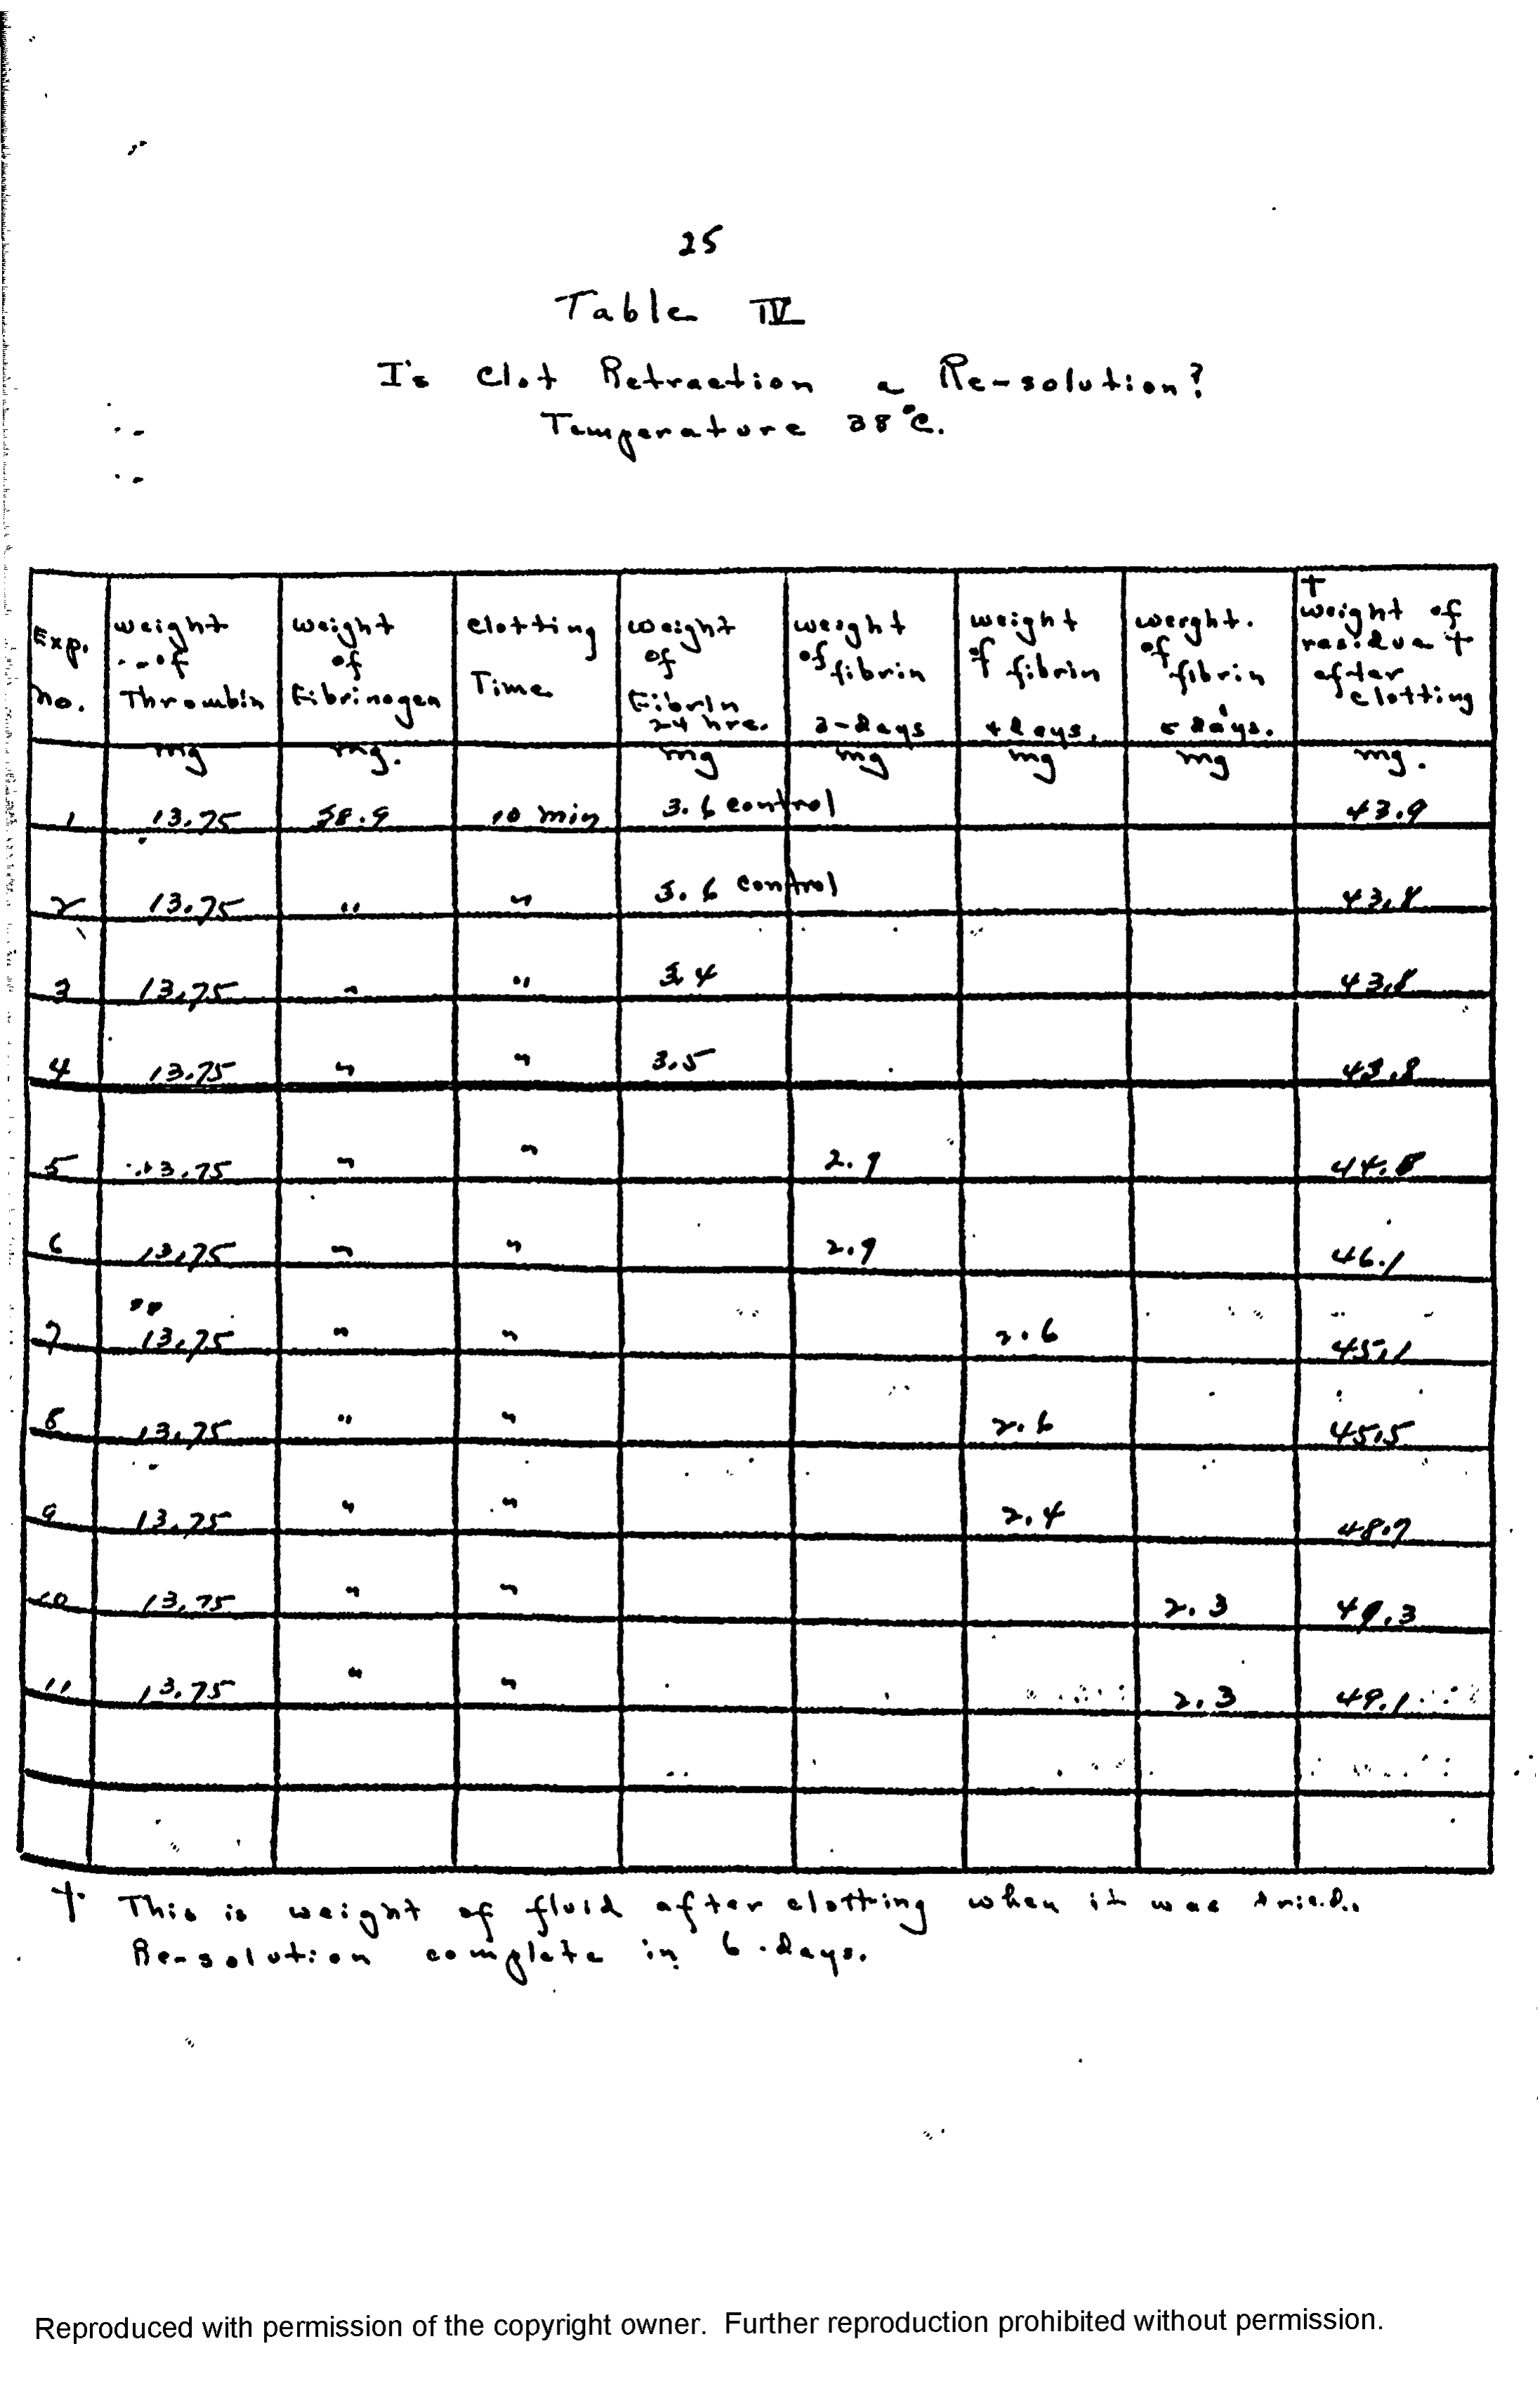 25
Table IV
Is Clot Retraction a Re-solution?
Temperature 38°C.
Exp. no. | weight of Thrombin | weight of Fibrinogen | Clotting Time | weight of Fibrin 24 hrs. | weight of fibrin 3-days | weight of fibrin 4 days. | weight of fibrin 5 days. | † weight of residue † after clotting
mg | mg. | mg | mg | mg | mg | mg.
1 | 13.75 | 58.9 | 10 min | 3.6 control | 43.9
2 | 13.75 | " | " | 3.6 control | 43.8
3 | 13.75 | " | " | 3.4 | 43.8
4 | 13.75 | " | " | 3.5 | 43.8
5 | 13.75 | " | " | 2.9
6 | 13.75 | " | " | 2.9 | 46.1
7 | 13.75 | " | " | 2.6 | 45.1
8 | 13.75 | " | " | 2.6 | 45.5
9 | 13.75 | " | " | 2.4 | 48.7
10 | 13.75 | " | " | 2.3 | 49.3
11 | 13.75 | " | " | 2.3 | 49.1
† This is weight of fluid after clotting when it was dried.
Re-solution complete in 6 days.
Reproduced with permission of the copyright owner. Further reproduction prohibited without permission.